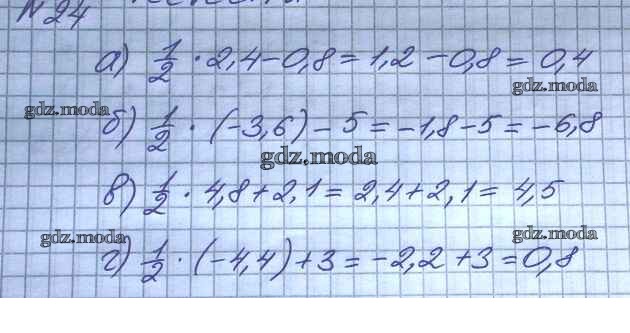 N24
а) 1/2 · 2,4 - 0,8 = 1,2 - 0,8 = 0,4
gdz.moda
gdz.moda
б) 1/2 · (-3,6) - 5 = -1,8 - 5 = -6,8
gdz.moda
в) 1/2 · 4,8 + 2,1 = 2,4 + 2,1 = 4,5
gdz.moda
gdz.moda
г) 1/2 · (-4,4) + 3 = -2,2 + 3 = 0,8